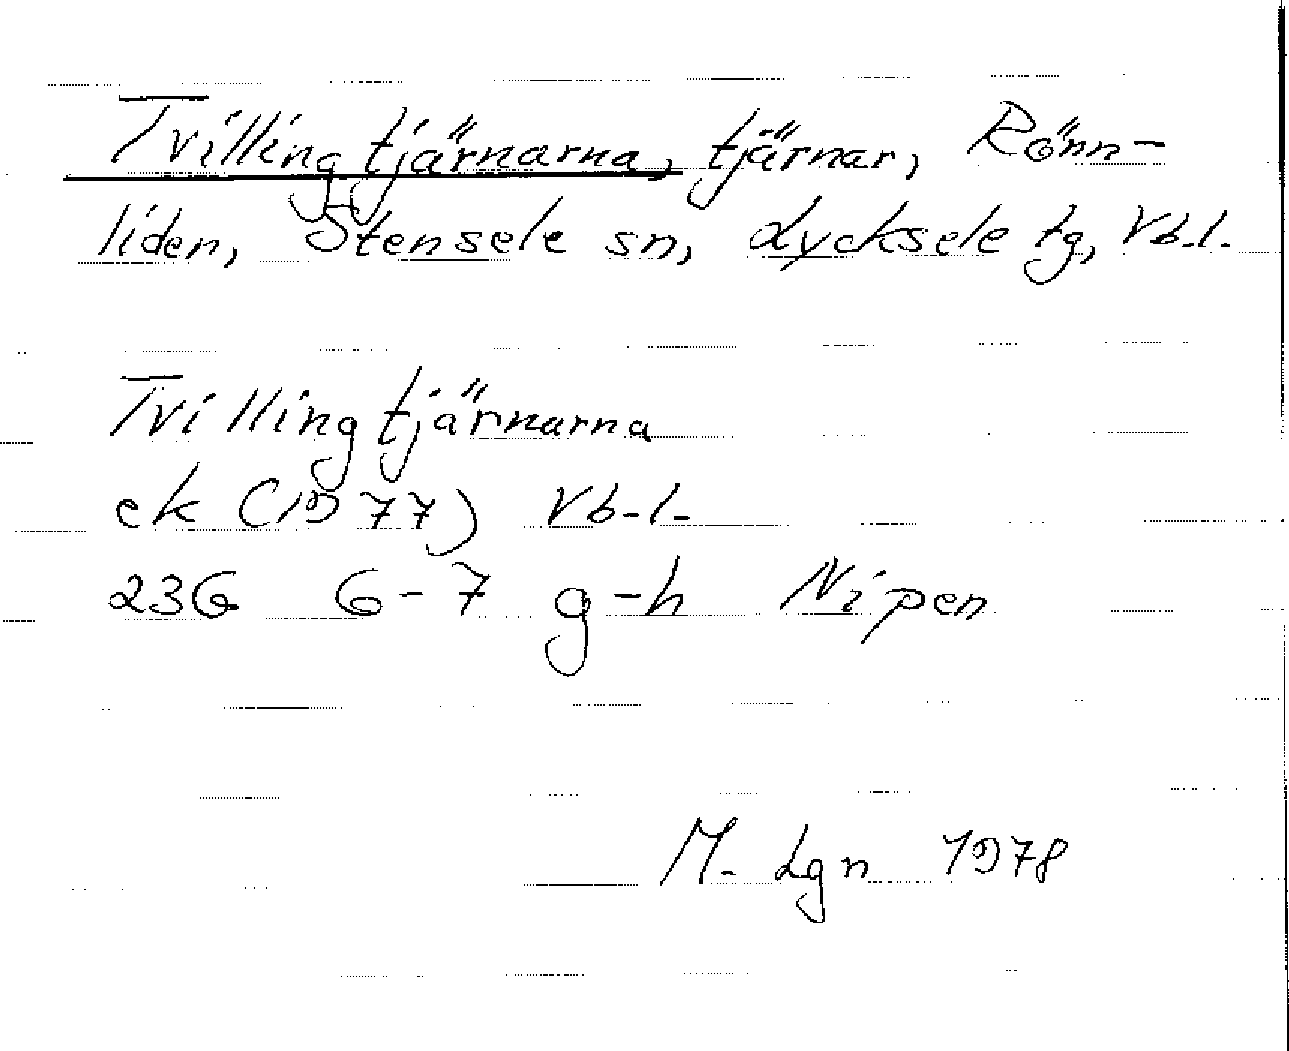 Tvillingtjärnarna, tjärnar, Rönn-
liden, Stensele sn, Lycksele tg, Vb.l.
Tvillingtjärnarna
ek (1977) Vb.l.
23G 6-7 g-h Nipen
M. Lgn 1978